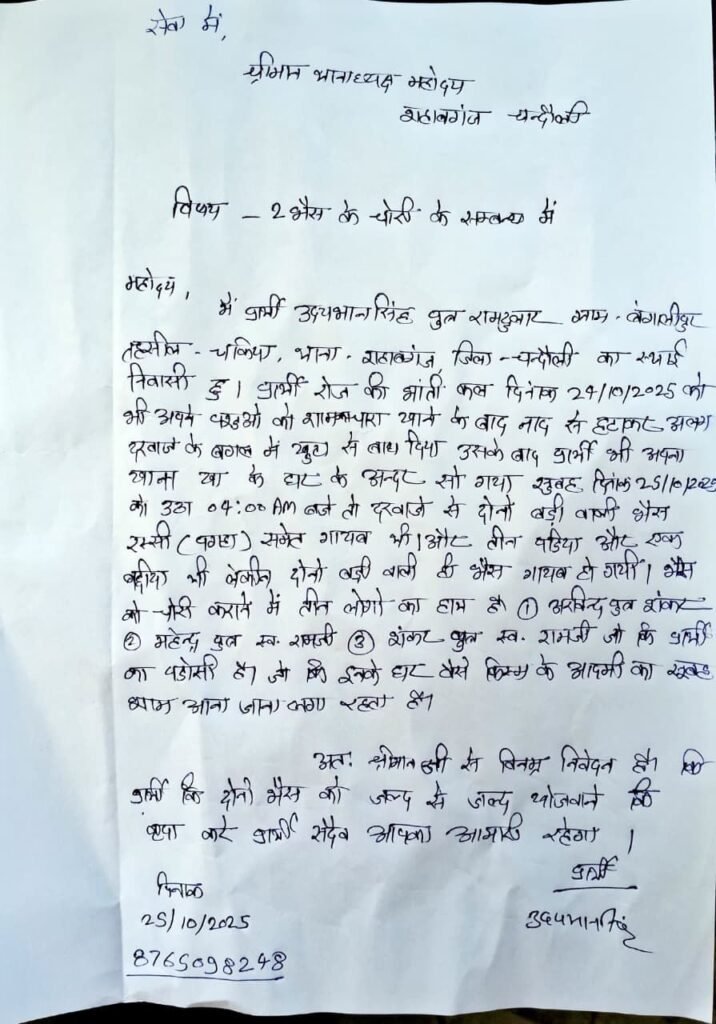 सेवा में,
श्रीमान थानाध्यक्ष महोदय
शहाबगंज चन्दौली
विषय - 2 भैस के चोरी के सम्बन्ध में
महोदय,
में प्रार्थी उदयभान सिंह पुत्र रामदुलार ग्राम - बंगालीपुर
तहसील - चकिया, थाना - शहाबगंज, जिला - चन्दौली का स्थाई
निवासी हु । प्रार्थी रोज की भांती कल दिनांक 24/10/2025 को
भी अपने पशुओ को शाम चारा खाने के बाद नाद से हटाकर अलग
दरवाजे के बगल में खुटा से बाध दिया उसके बाद प्रार्थी भी अपना
खाना खा के घर के अन्दर सो गया सुबह दिनांक 25/10/2025
को उठा 04:00 AM बजे तो दरवाजे से दोनो बड़ी वाली भैस
रस्सी (पगहा) समेत गायब थी । और तीन पडिया और एक
बछीया थी लेकीन दोनो बड़ी वाली ही भैस गायब हो गयी । भैस
को चोरी कराने में तीन लोगो का हाथ है ① अरविन्द पुत्र शंकर
② महेन्द्र पुत्र स्व. रामजी ③ शंकर पुत्र स्व. रामजी जो कि प्रार्थी
का पडोसी है। जो कि इनके घर वैसे किस्म के आदमी का सुबह
शाम आना जाना लगा रहता है।
अतः श्रीमान जी से विनम्र निवेदन है। कि
प्रार्थी कि दोनो भैस को जल्द से जल्द खोजवाने कि
कृपा करे प्रार्थी सदैव आपका आभारी रहेगा ।
प्रार्थी
दिनाक
25/10/2025
उदयभान सिंह
8765098248